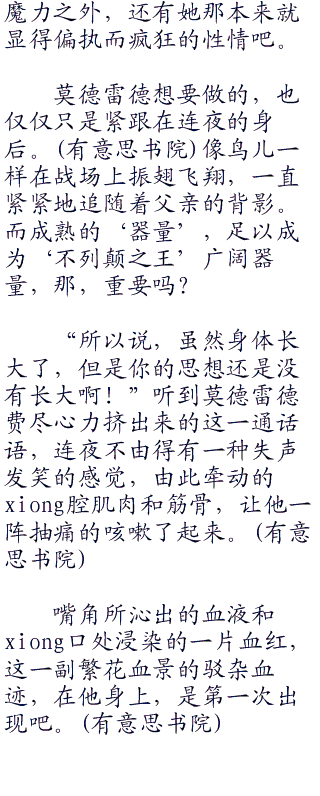 魔力之外，还有她那本来就
显得偏执而疯狂的性情吧。
莫德雷德想要做的，也
仅仅只是紧跟在连夜的身
后。(有意思书院)像鸟儿一
样在战场上振翅飞翔，一直
紧紧地追随着父亲的背影。
而成熟的‘器量’，足以成
为‘不列颠之王’广阔器
量，那，重要吗？
“所以说，虽然身体长
大了，但是你的思想还是没
有长大啊！”听到莫德雷德
费尽心力挤出来的这一通话
语，连夜不由得有一种失声
发笑的感觉，由此牵动的
xiong腔肌肉和筋骨，让他一
阵抽痛的咳嗽了起来。(有意
思书院)
嘴角所沁出的血液和
xiong口处浸染的一片血红，
这一副繁花血景的驳杂血
迹，在他身上，是第一次出
现吧。(有意思书院)